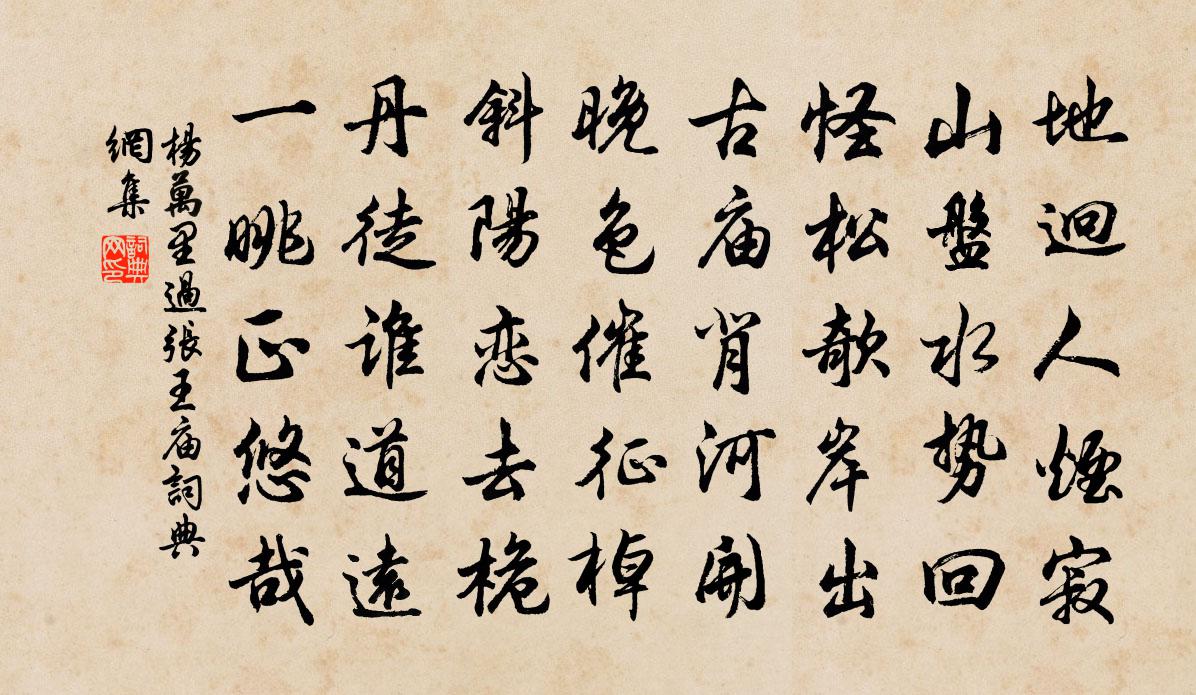 地迥人煙寂
山盤水勢回
怪松欹岸出
古庙背河開
晚色催征棹
斜陽恋去桅
丹徒谁道遠
一眺正悠哉
楊萬里過張王庙詞典
網集
詞典
网印